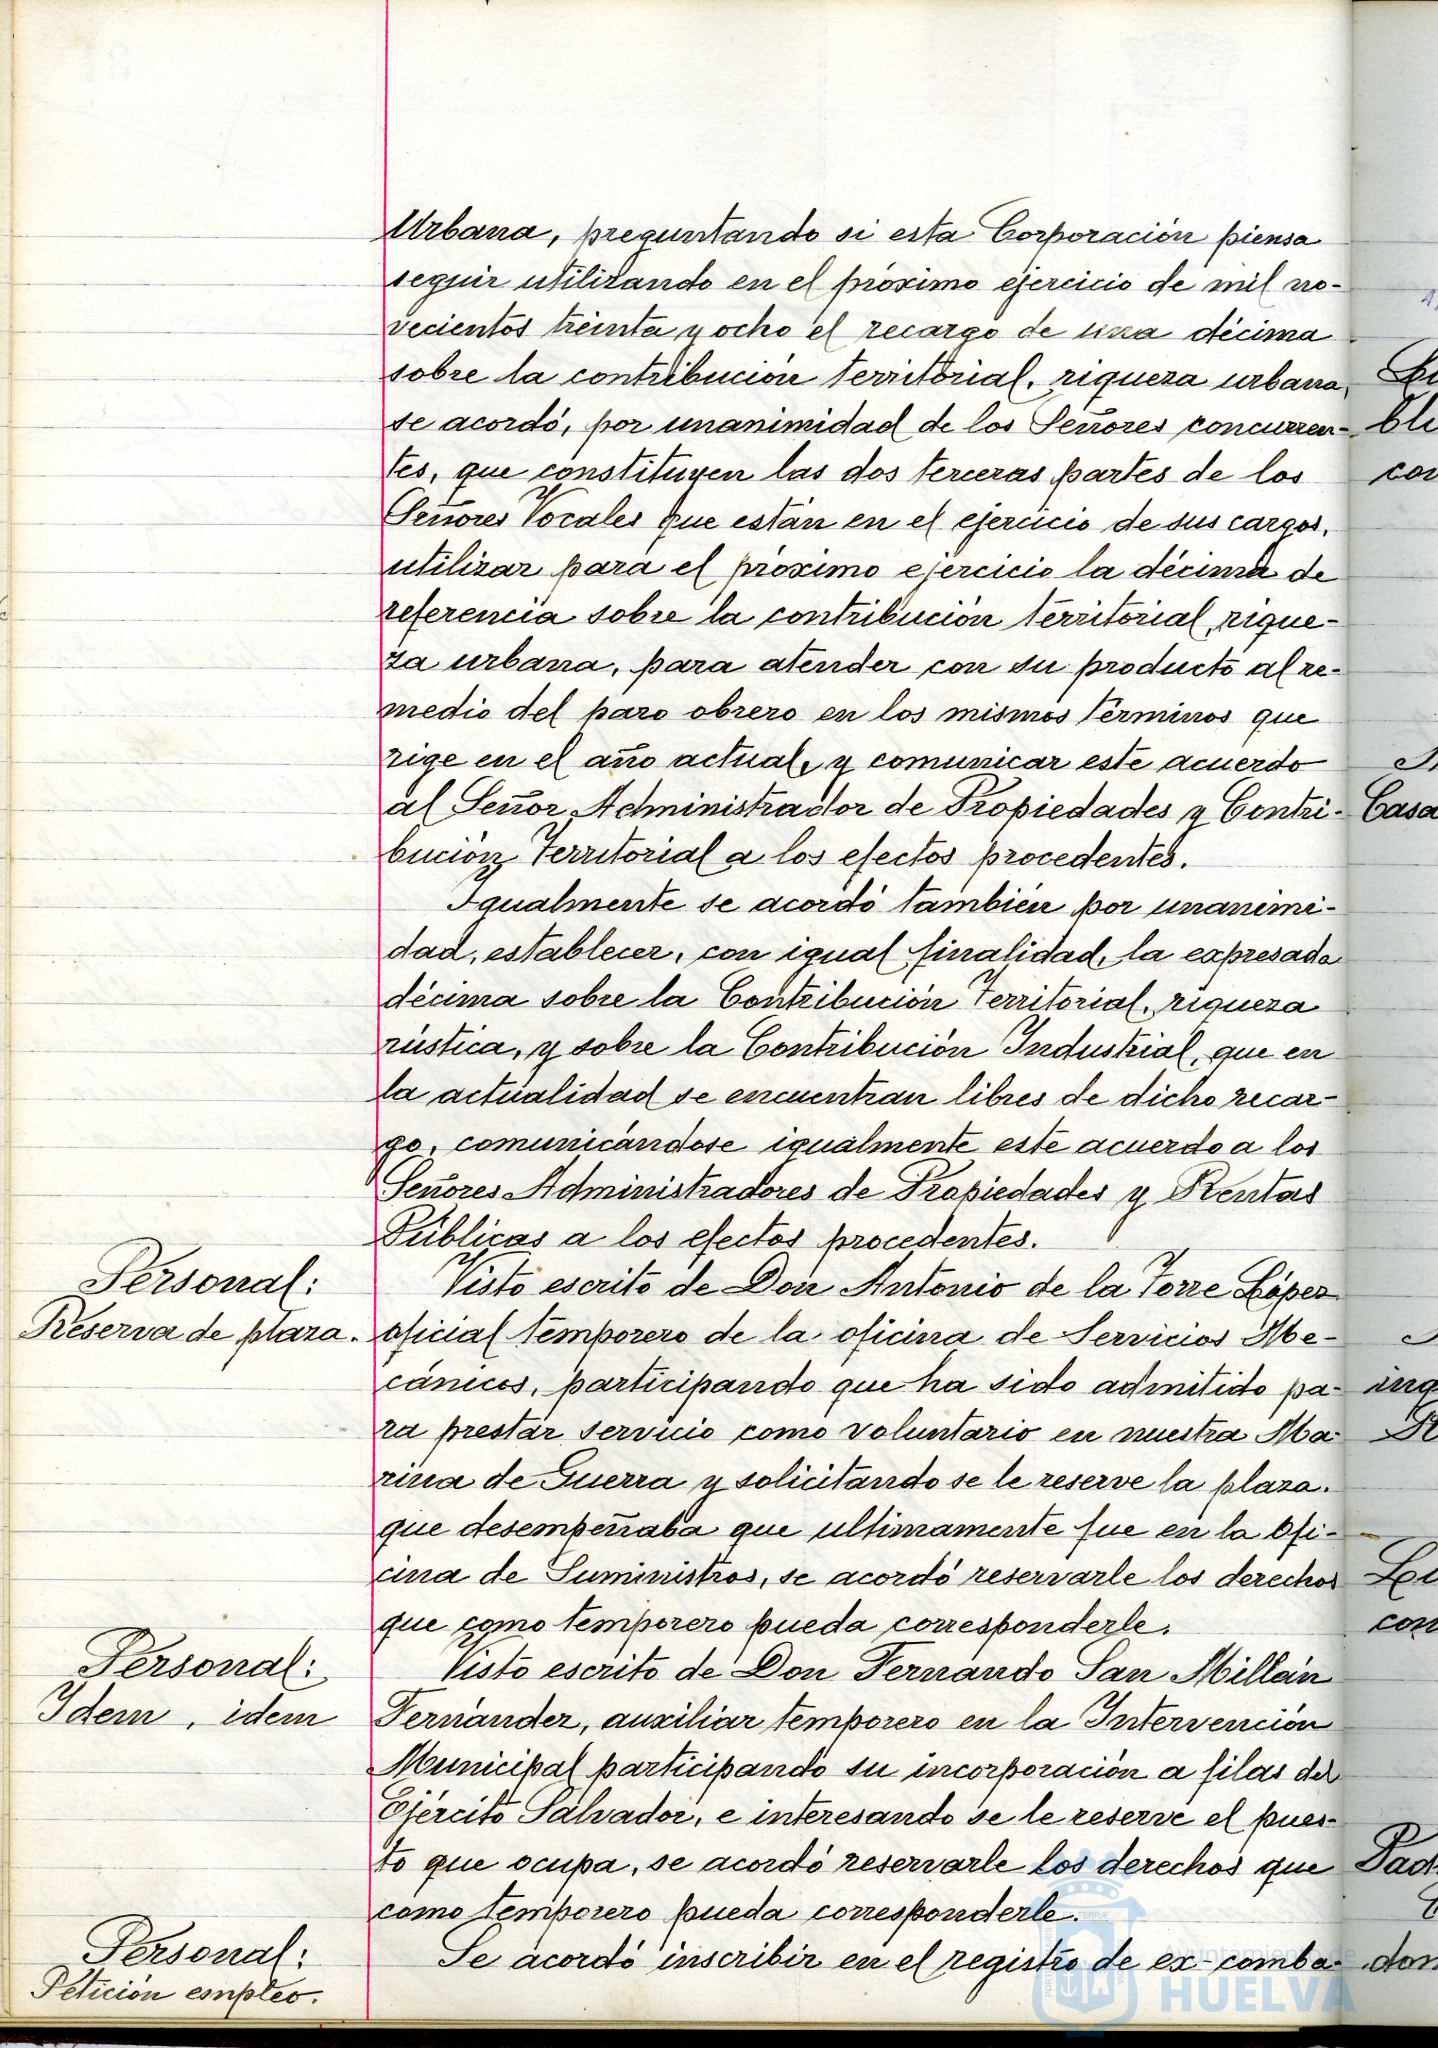 Urbana, preguntando si esta Corporación piensa
seguir utilizando en el próximo ejercicio de mil no-
vecientos treinta y ocho el recargo de una décima
sobre la contribución territorial, riqueza urbana,
se acordó, por unanimidad de los Señores concurren-
tes, que constituyen las dos terceras partes de los
Señores Vocales que están en el ejercicio de sus cargos,
utilizar para el próximo ejercicio la décima de
referencia sobre la contribución territorial, rique-
za urbana, para atender con su producto al re-
medio del paro obrero en los mismos términos que
rige en el año actual, y comunicar este acuerdo
al Señor Administrador de Propiedades y Contri-
bución Territorial a los efectos procedentes.
Igualmente se acordó también por unanimi-
dad, establecer, con igual finalidad, la expresada
décima sobre la Contribución Territorial, riqueza
rústica, y sobre la Contribución Industrial, que en
la actualidad se encuentran libres de dicho recar-
go, comunicándose igualmente este acuerdo a los
Señores Administradores de Propiedades y Rentas
Públicas a los efectos procedentes.
Personal:
Reserva de plaza.
Visto escrito de Don Antonio de la Torre López
oficial temporero de la oficina de Servicios Me-
cánicos, participando que ha sido admitido pa-
ra prestar servicio como voluntario en nuestra Ma-
rina de Guerra y solicitando se le reserve la plaza.
que desempeñaba que ultimamente fue en la Ofi-
cina de Suministros, se acordó reservarle los derechos
que como temporero pueda corresponderle.
Personal:
Idem, idem
Visto escrito de Don Fernando San Millán
Fernández, auxiliar temporero en la Intervención
Municipal participando su incorporación a filas del
Ejército Salvador, e interesando se le reserve el pues-
to que ocupa, se acordó reservarle los derechos que
como temporero pueda corresponderle.
Personal:
Petición empleo.
Se acordó inscribir en el registro de ex-comba-
Casa
con
Ayuntamiento de
HUELVA